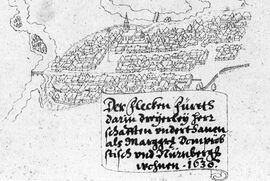 Der flecken Fürtt
darin dreyerley herr
schafften underthanen
als Marggrf Dompröbs
tisch und Nürnbergh
wohnen · 1630 ·